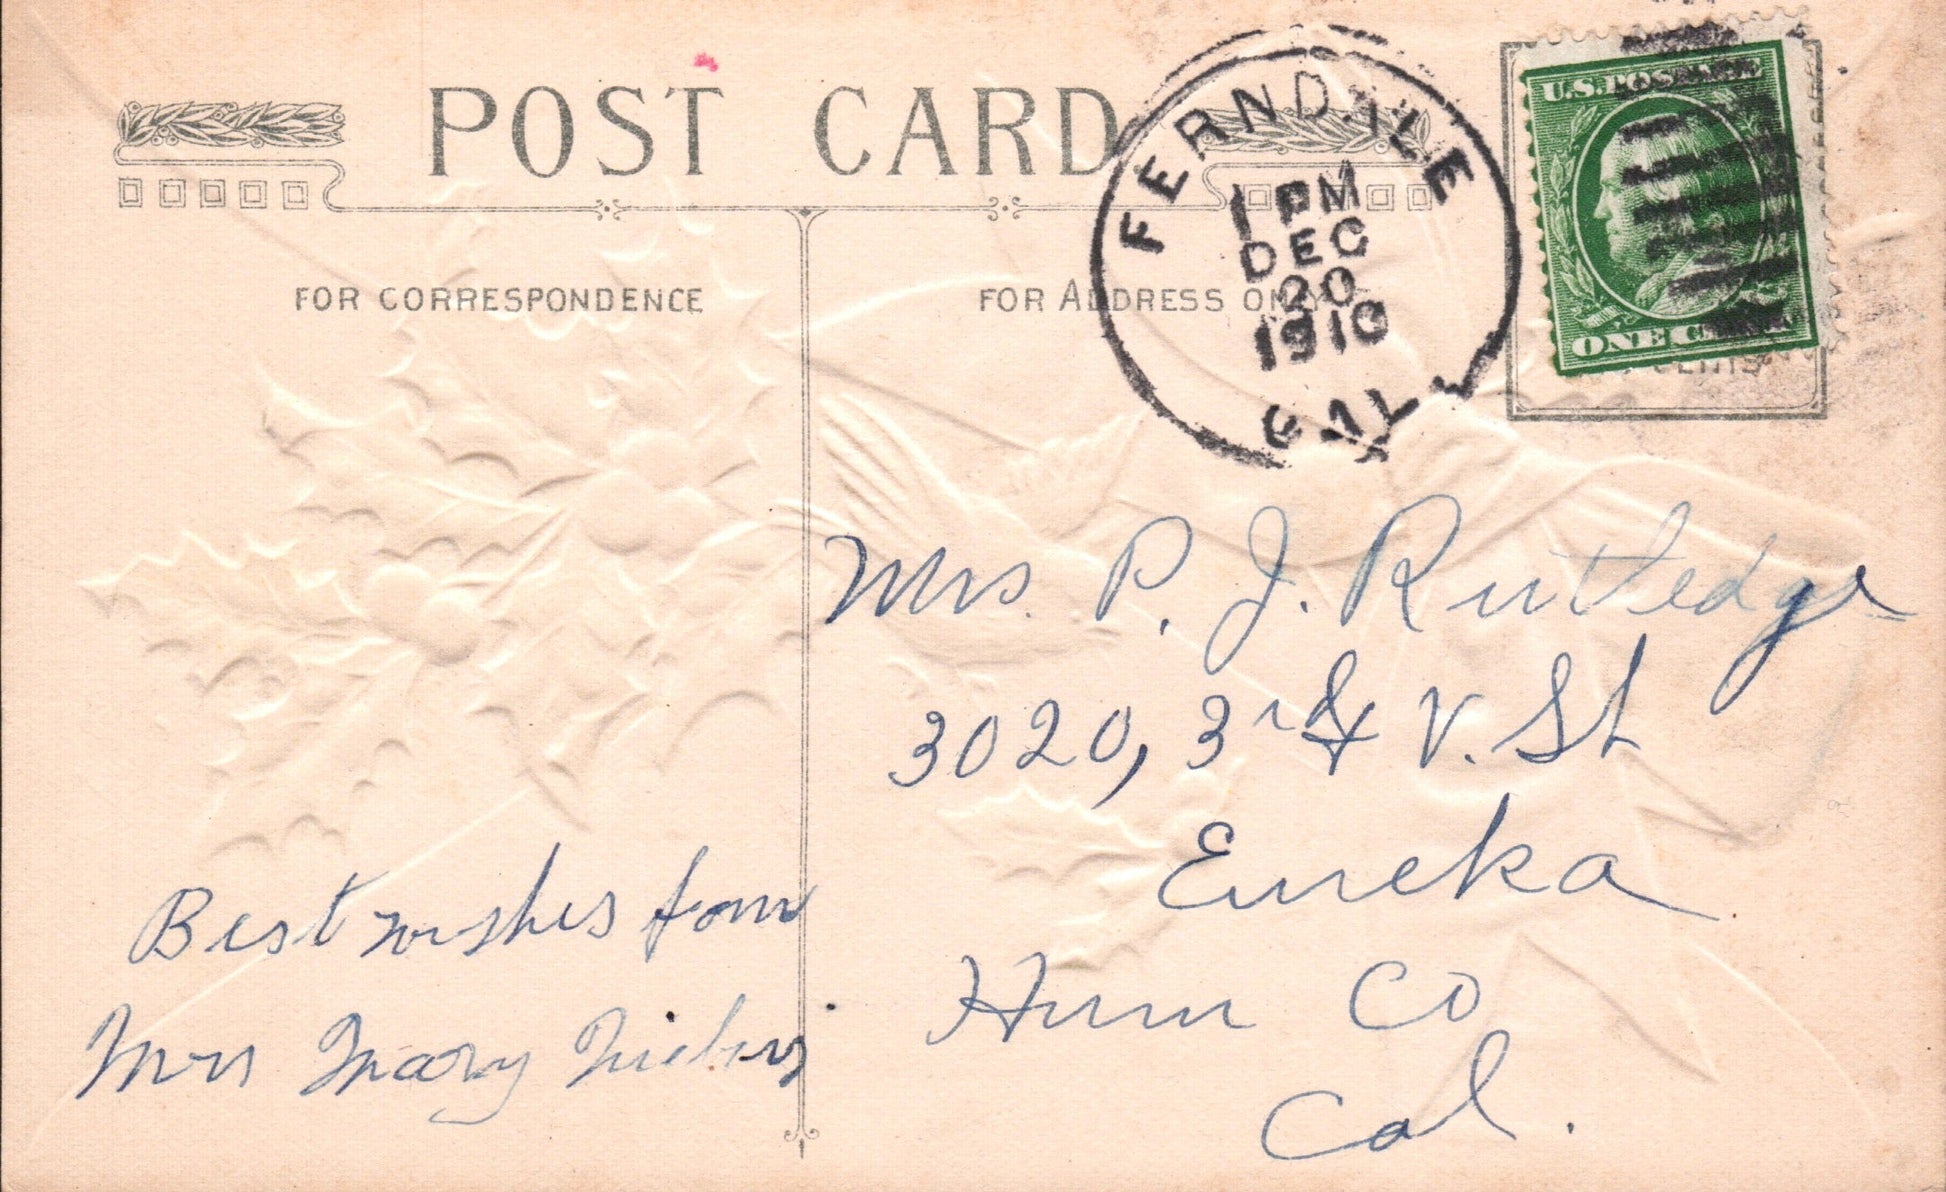 POST CARD
FERNDALE
1 PM
DEC
20
1910
CAL
U.S. POSTAGE
ONE C
FOR CORRESPONDENCE
FOR ADDRESS ONLY
Best wishes from
Mrs Mary
Mrs. P. J. Rutledge
3020, 3rd & V. St
Eureka
Hum Co
Cal.